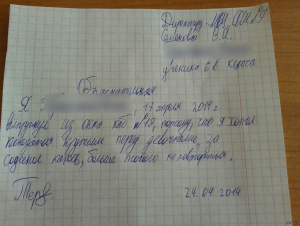 Директору МОУ СОШ №9
В.А.
ученика 6 в класса
Объяснительная
Я 17 апреля 2014 г
выпрыгнул из окна каб №19, потому, что я хотел
показаться крутым перед девочками, за
содеяное каюсь, больше такого не повториться.
24.04.2014